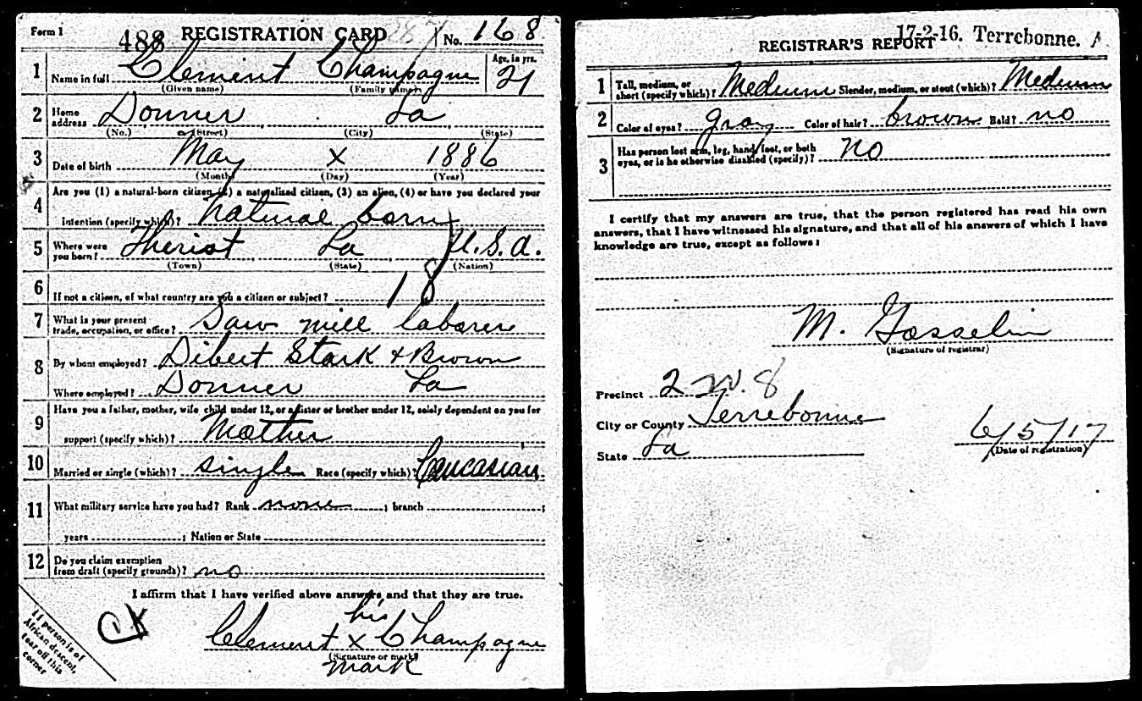 Form 1 488 REGISTRATION CARD No. 168
1 Name in full Clement Champagne Age, in yrs. 21
(Given name) (Family name)
2 Home address Donner La
(No.) (Street) (City) (State)
3 Date of birth May X 1886
(Month) (Day) (Year)
4 Are you (1) a natural-born citizen, (2) a naturalized citizen, (3) an alien, (4) or have you declared your
intention (specify which)? natural born
5 Where were you born? Theriot La U.S.A.
(Town) (State) (Nation)
6 If not a citizen, of what country are you a citizen or subject? 18
7 What is your present trade, occupation, or office? Saw mill laborer
8 By whom employed? Dibert Stark & Brown
Where employed? Donner La
9 Have you a father, mother, wife, child under 12, or a sister or brother under 12, solely dependent on you for
support (specify which)? Mother
10 Married or single (which)? single Race (specify which)? Caucasian
11 What military service have you had? Rank none ; branch ;
years ; Nation or State
12 Do you claim exemption from draft (specify grounds)? no
I affirm that I have verified above answers and that they are true.
his
Clement X Champagne
(Signature or mark)
mark
If person is of
African descent,
tear off this
corner
17-2-16. Terrebonne. A
REGISTRAR'S REPORT
1 Tall, medium, or short (specify which)? Medium Slender, medium, or stout (which)? Medium
2 Color of eyes? gray Color of hair? brown Bald? no
3 Has person lost arm, leg, hand, foot, or both eyes, or is he otherwise disabled (specify)? no
I certify that my answers are true, that the person registered has read his own
answers, that I have witnessed his signature, and that all of his answers of which I have
knowledge are true, except as follows:
M. Gosselin
(Signature of registrar)
Precinct 2 W. 8
City or County Terrebonne
State La
6/5/17
(Date of registration)